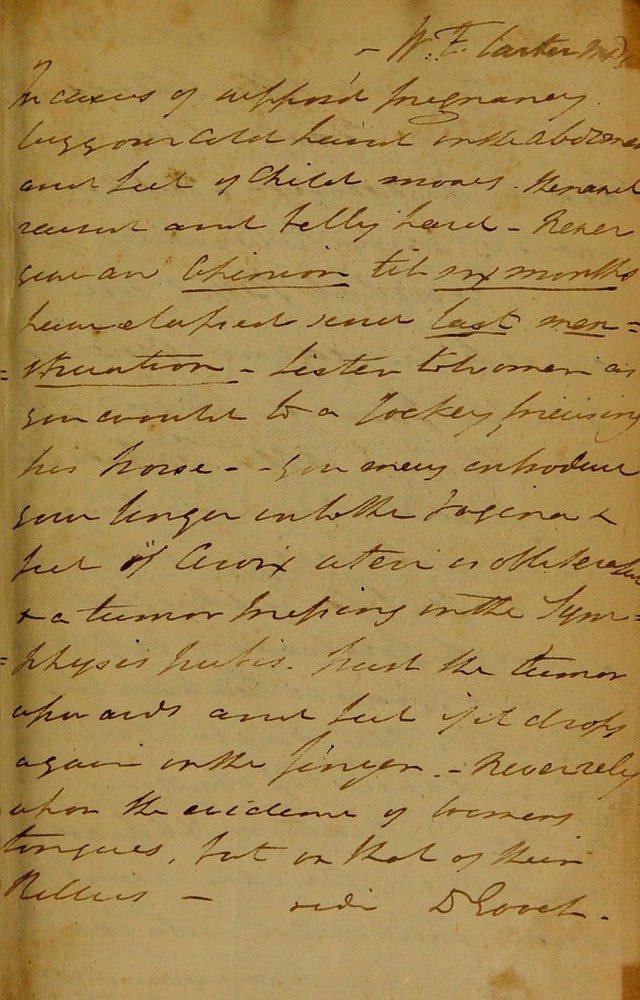 - W. F. Carter MD
In cases of suppos'd pregnancy.
lay your cold hand on the abdomen
and feel if child moves. the navel
raised and belly hard - Never
give an Opinion till six months
have elapsed since last men=
=struation - Listen to women as
you would to a Jockey praising
his horse - - you may introduce
your finger into the vagina &
feel if Cervix uteri is obliterated
& a tumor pressing on the Sym=
=physis pubis. push the tumor
upwards and feel if it drops
again on the finger. - Never rely
upon the evidence of womens
tongues, but on that of their
Bellies - vide D Gooch.